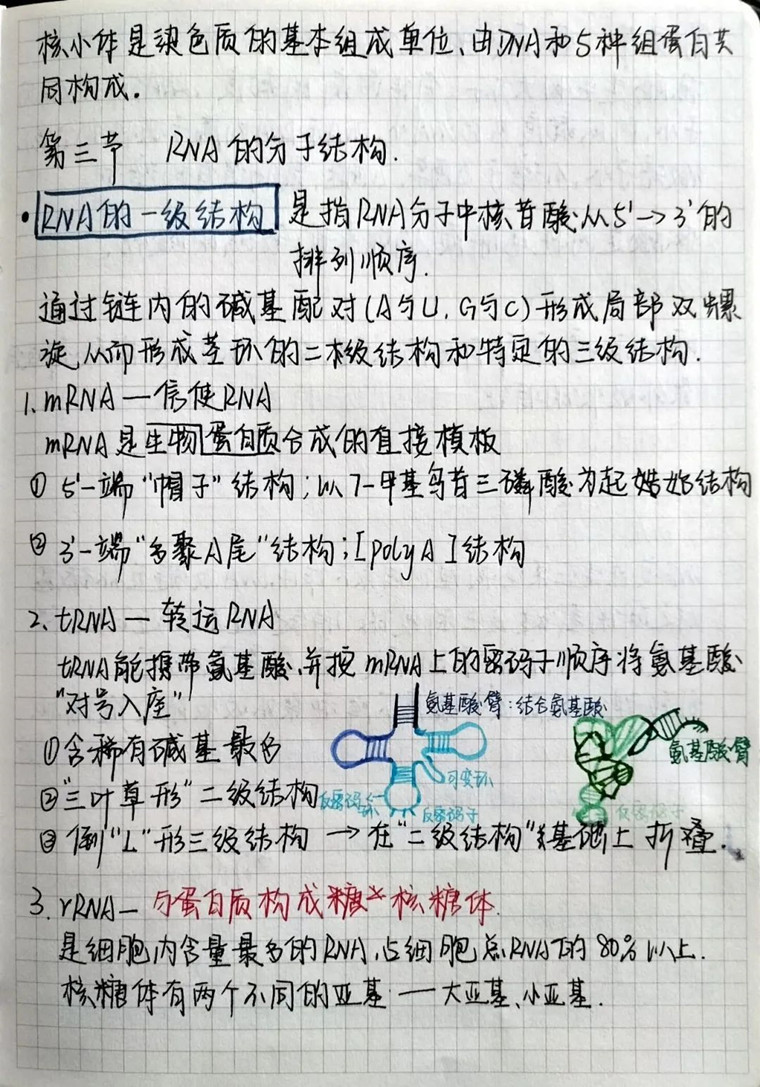 核小体是染色质的基本组成单位、由DNA和5种组蛋白共
同构成.
第三节 RNA的分子结构.
·RNA的一级结构 是指RNA分子中核苷酸从5'→3'的
排列顺序.
通过链内的碱基配对(A与U,G与C)形成局部双螺
旋,从而形成茎环的二级结构和特定的三级结构.
1.mRNA—信使RNA
mRNA是生物蛋白质合成的直接模板
① 5'-端"帽子"结构;以7-甲基鸟苷三磷酸为起始结构
② 3'-端"多聚A尾"结构;[polyA]结构
2.tRNA—转运RNA
tRNA能携带氨基酸,并按mRNA上的密码子顺序将氨基酸
"对号入座"
氨基酸臂:结合氨基酸
①含稀有碱基最多
可变环
氨基酸臂
②"三叶草形"二级结构
反密码环
反密码子
反密码子
③倒"L"形三级结构 → 在"二级结构"基础上折叠.
3.rRNA—与蛋白质构成核糖体.
是细胞内含量最多的RNA,占细胞总RNA的80%以上.
核糖体有两个不同的亚基——大亚基、小亚基.